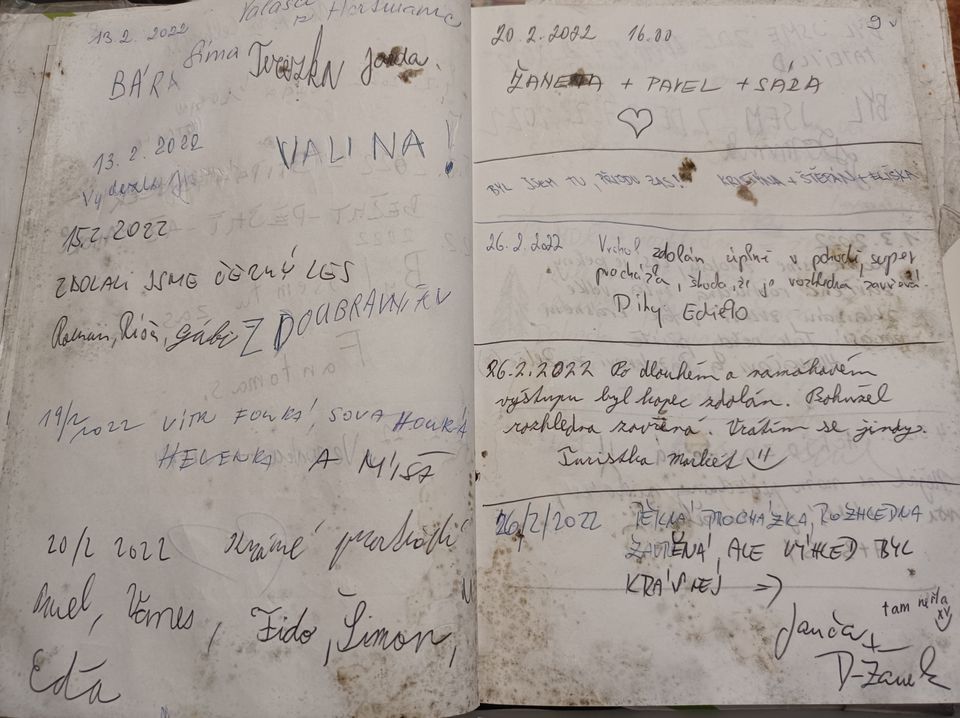 13.2. 2022
Šíma Terezka Jarda.
BÁRA
13. 2. 2022
VALINA!
15.2.2022
ZDOLALI JSME ČERNÝ LES
Roman, Gábi Z DOUBRAVNÍKU
19/2 2022 VÍTR FOUKÁ, SOVA HOUKÁ
HELENKA A MÍŠA
20/2 2022 Krásné prostředí
James, Fido, Šimon,
Eda
9
20.2.2022 16.00
ŽANETA + PAVEL + SÁRA
BYL JSEM TU, PŘIJDU ZAS! KRISTÝNA + ŠTĚPÁN + ELIŠKA
26.2.2022 Vrchol zdolán úplně v pohodě, super
procházka, škoda, že je rozhledna zavřená.
Díky
26.2.2022 Po dlouhém a namáhavém
výstupu byl kopec zdolán. Bohužel
rozhledna zavřena. Vrátím se jindy.
Turistka Markét
26/2/2022 PĚKNÁ PROCHÁZKA, ROZHLEDNA
ZAVŘENÁ, ALE VÝHLED BYL
KRÁSNEJ =>)
Janča +
D-Žanek